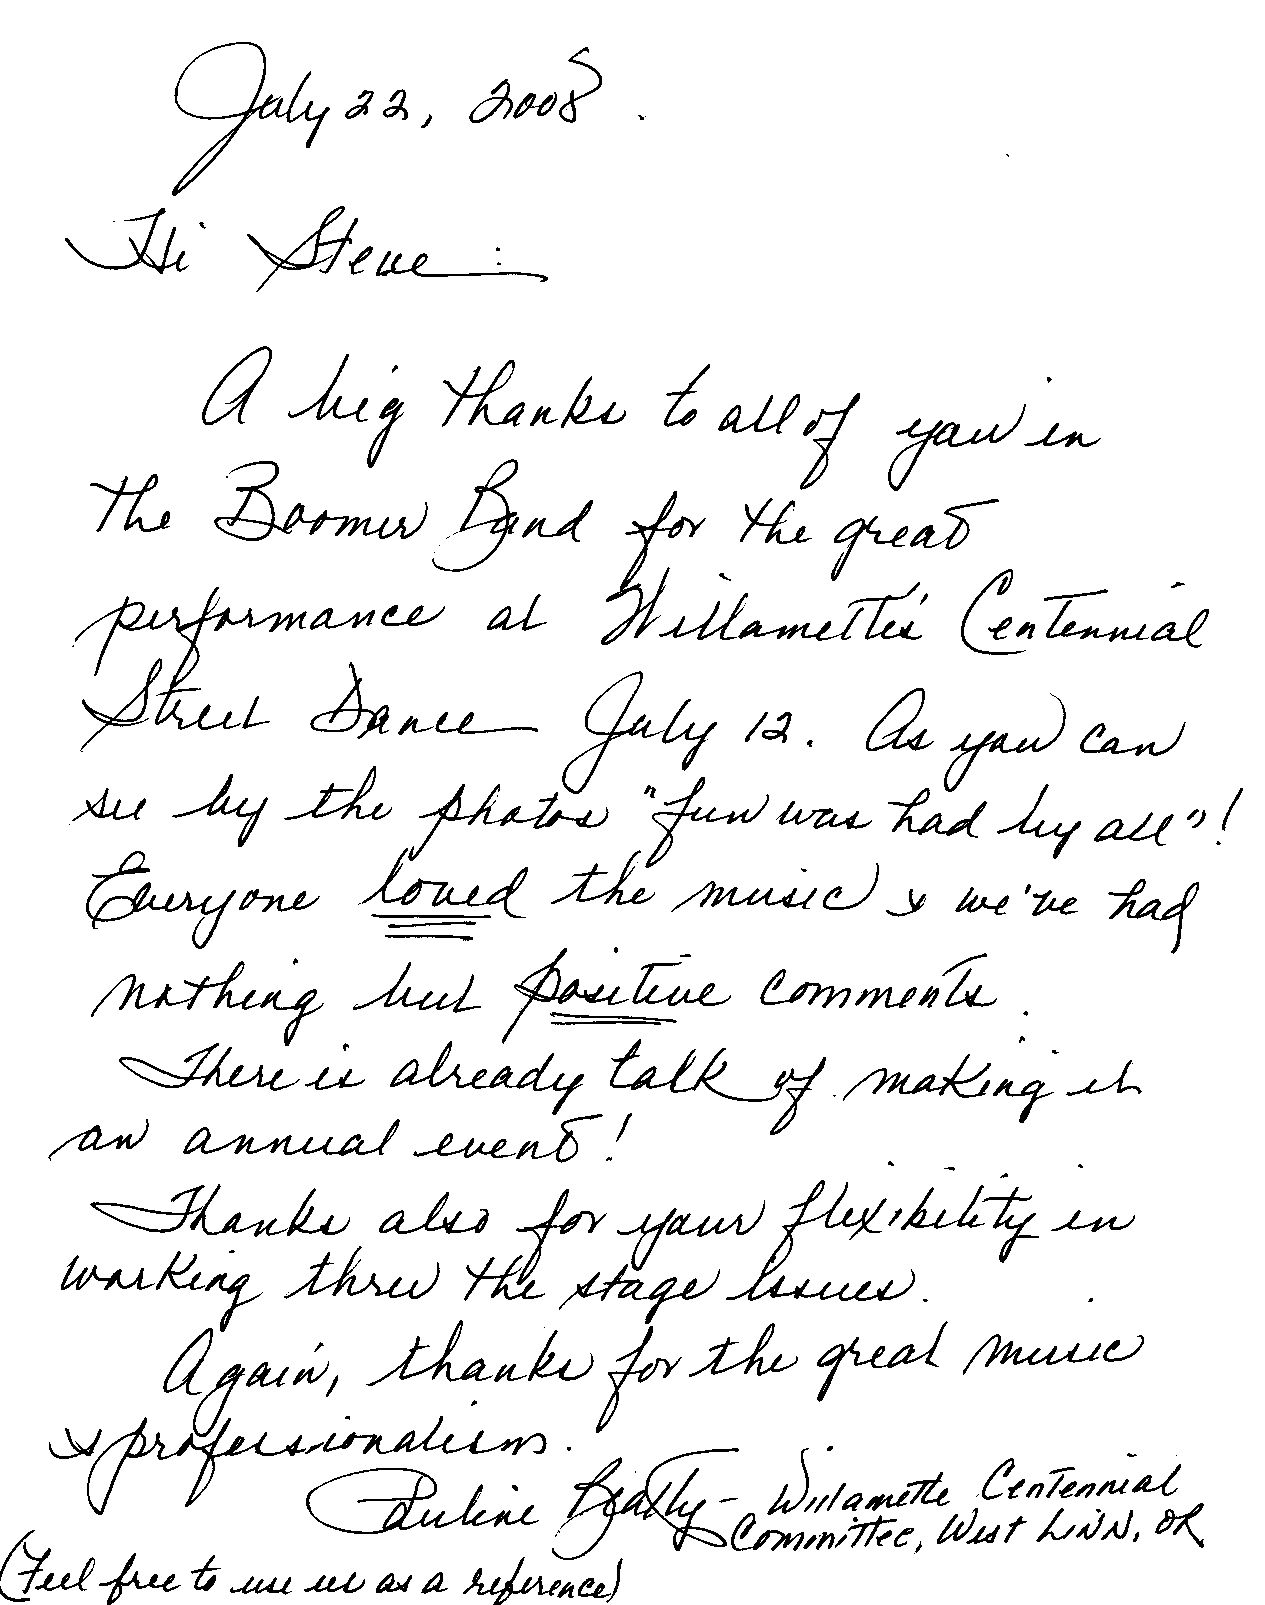 July 22, 2008.
Hi Steve:
A big thanks to all of you in
the Boomer Band for the great
performance at Willamette's Centennial
Street Dance July 12. As you can
see by the photos "fun was had by all"!
Everyone loved the music & we've had
nothing but positive comments.
There is already talk of making it
an annual event!
Thanks also for your flexibility in
working thru the stage issues.
Again, thanks for the great music
& professionalism.
Pauline Beatty - Willamette Centennial
Committee, West Linn, OR
(Feel free to use us as a reference)